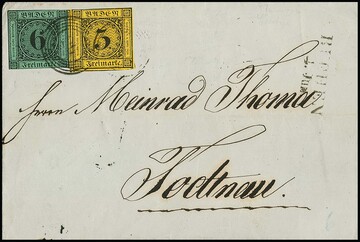 BADEN
6
Freimarke.
BADEN
5
Freimarke.
Herrn Meinrad Thoma
Todtnau.